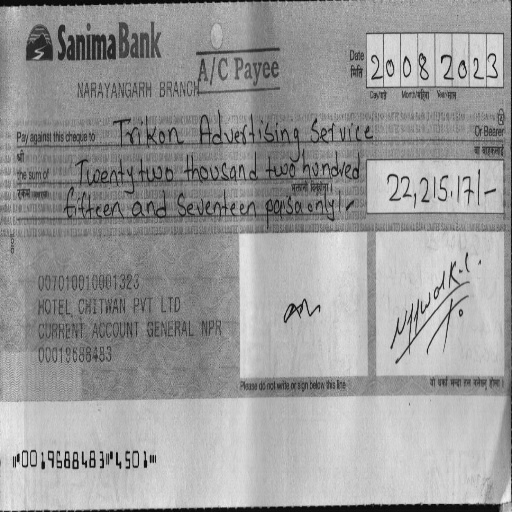 Sanima Bank
A/C Payee
NARAYANGARH BRANCH
Date
मिति
20082023
Day/गते Month/महिना Year/साल
Pay against this cheque to Trikon Advertising Service Or Bearer
श्री वा वाहकलाई
the sum of Twenty two thousand two hundred
रकम
fifteen and Seventeen paisa only/-
22,215.17/-
007010010001323
HOTEL CHITWAN PVT LTD
CURRENT ACCOUNT GENERAL NPR
00019688483
Please do not write or sign below this line
⑈0019688483⑈4501⑈